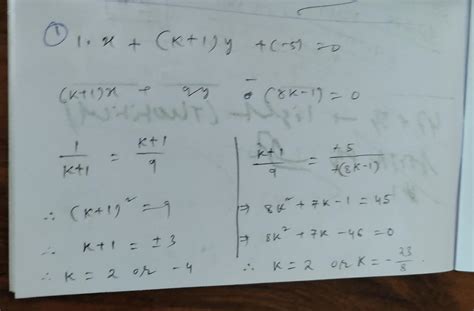 ① 1. x + (k+1)y + (-5) = 0
(k+1)x + 9y - (8k-1) = 0
1/(k+1) = (k+1)/9
∴ (k+1)² = 9
∴ k+1 = ±3
∴ k = 2 or -4
(k+1)/9 = +5/+(8k-1)
⇒ 8k² + 7k - 1 = 45
⇒ 8k² + 7k - 46 = 0
∴ k = 2 or k = -23/8.